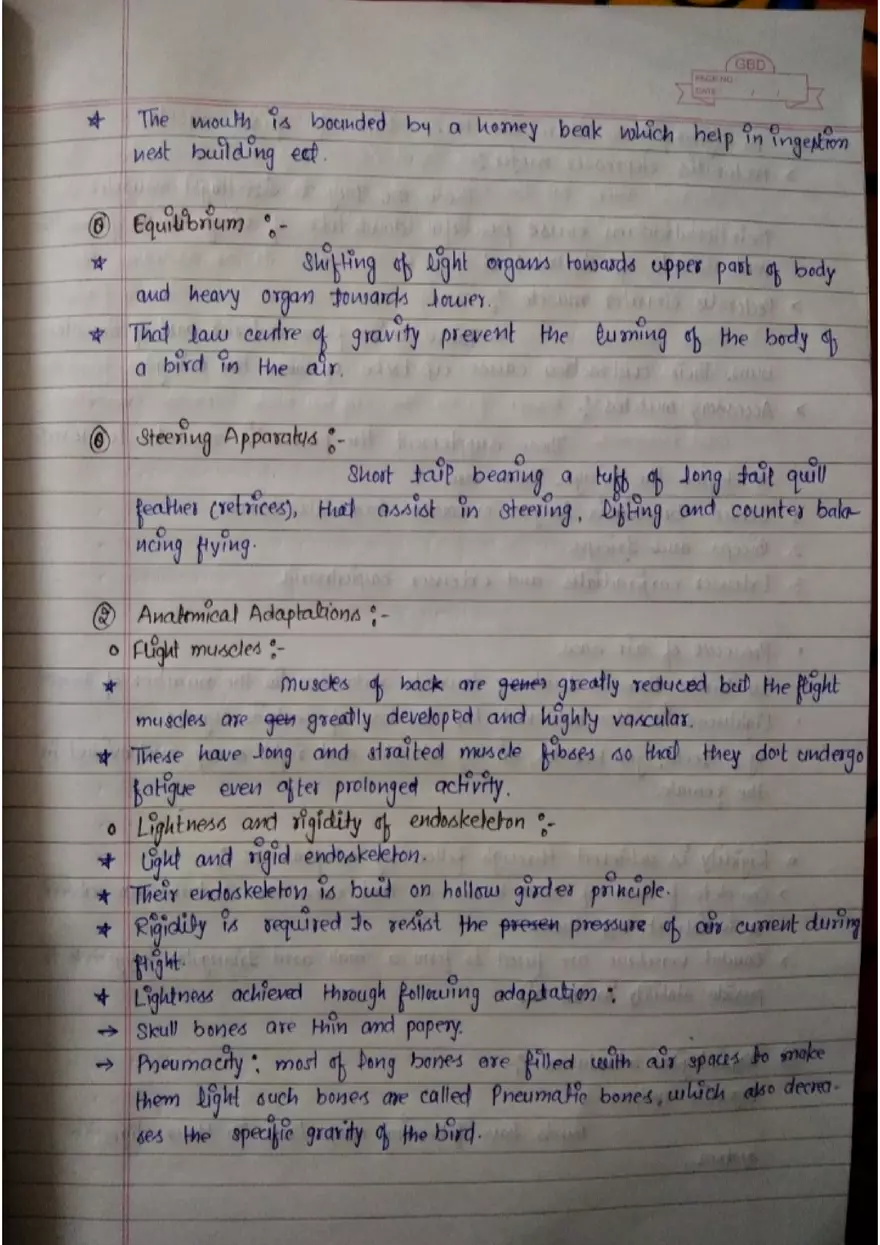 GBD
PAGE NO
DATE / /
★ The mouth is bounded by a horney beak which help in ingestion
nest building ect.
⑥ Equilibrium :-
★ Shifting of light organs towards upper part of body
and heavy organ towards lower.
★ That law centre of gravity prevent the turning of the body of
a bird in the air.
⑥ Steering Apparatus :-
Short tail bearing a tuff of long tail quill
feather (retrices), that assist in steering, lifting and counter bala-
ncing flying.
② Anatomical Adaptations :-
o Flight muscles :-
★ Muscles of back are gener greatly reduced but the flight
muscles are gen greatly developed and highly vascular.
★ These have long and straited muscle fibses so that they dot undergo
fatigue even after prolonged activity.
o Lightness and rigidity of endoskeleton :-
★ Light and rigid endoskeleton.
★ Their endoskeleton is buit on hollow girder principle.
★ Rigidity is required to resist the presen pressure of air current during
flight.
★ Lightness achieved through following adaptation :
→ Skull bones are thin and papery.
→ Pneumacity : most of long bones are filled with air spaces to make
them light such bones are called Pneumatic bones, which also decrea-
ses the specific gravity of the bird.